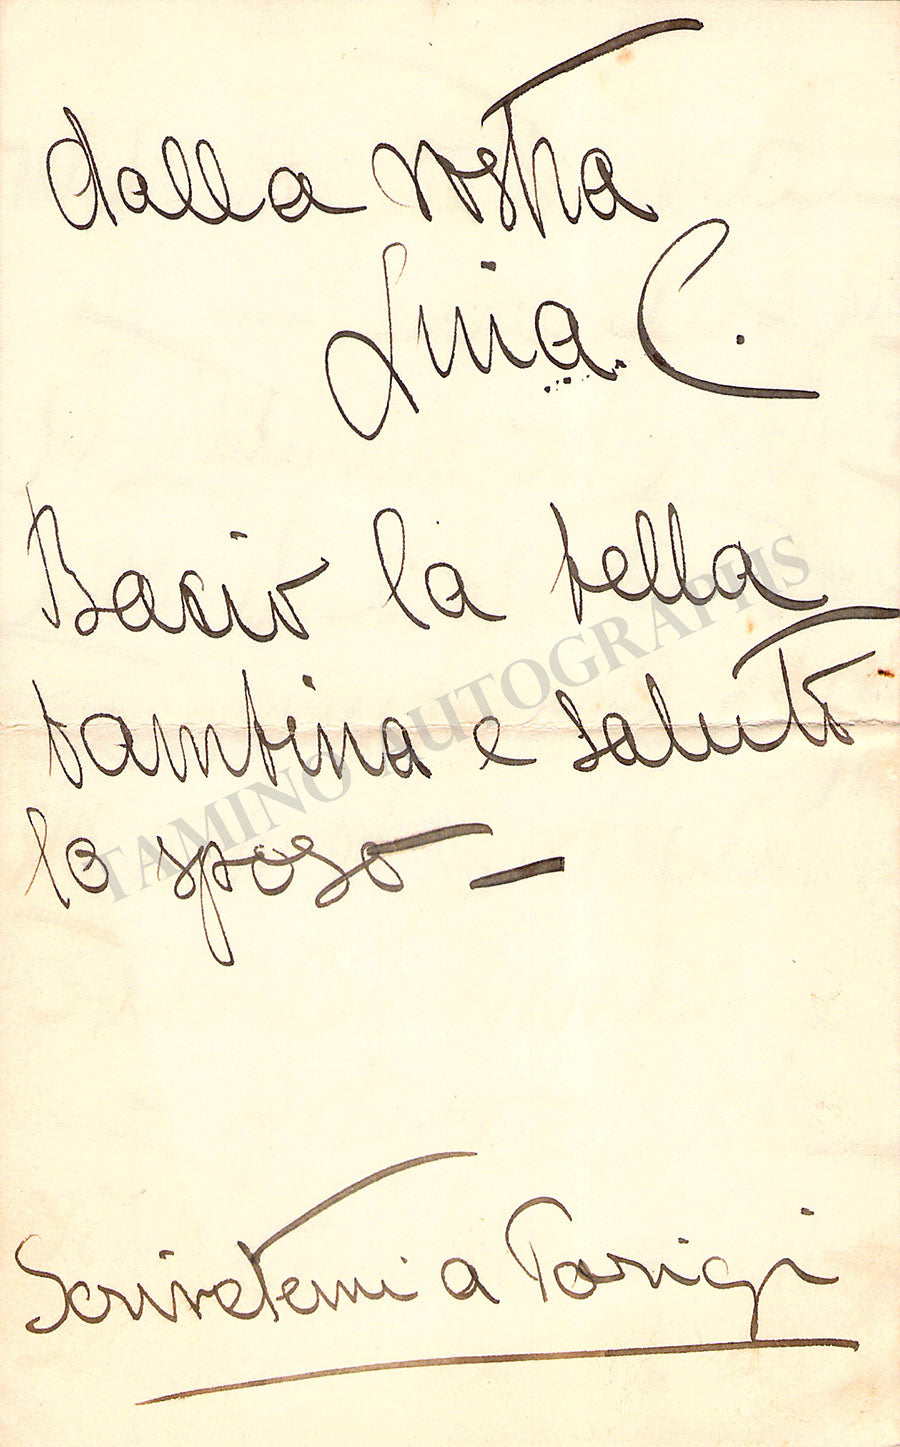 dalla vostra
Lina C.
Bacio la bella
bambina e saluto
lo sposo —
Scrivetemi a Parigi
TAMINO AUTOGRAPHS